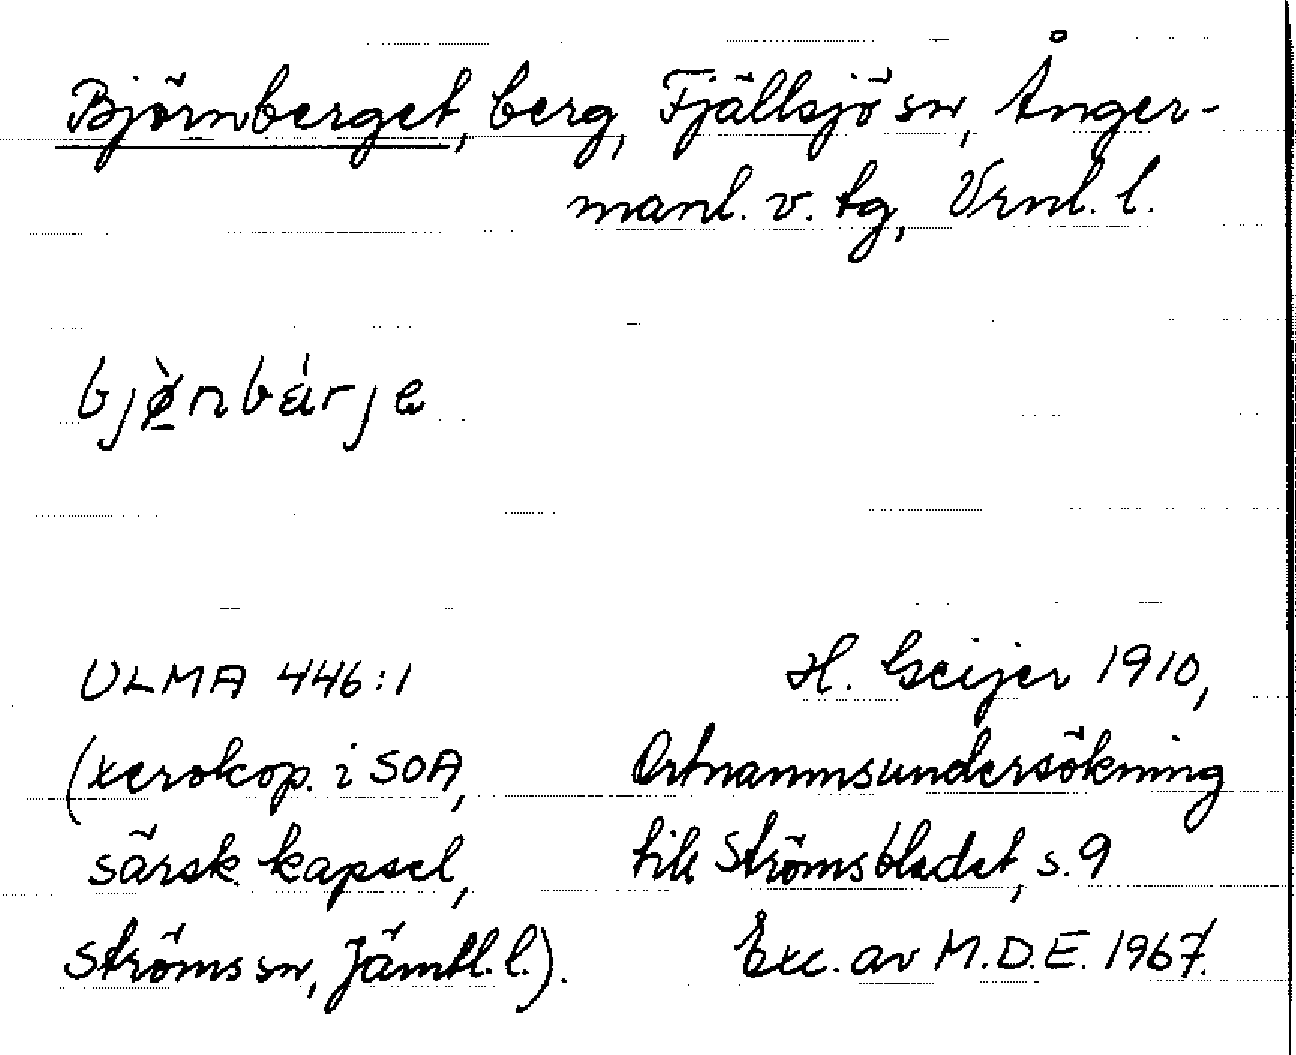 Björnberget, berg, Fjällsjö sn, Ånger-
manl. v. tg, Vrnl. l.
bjø̠̀nbárje
ULMA 446:1
H. Geijer 1910,
(xerokop. i SOA,
Ortnamnsundersökning
särsk. kapsel,
till Strömsbladet, s. 9
Ströms sn, Jämtl. l.).
Exc. av M.D.E. 1967.